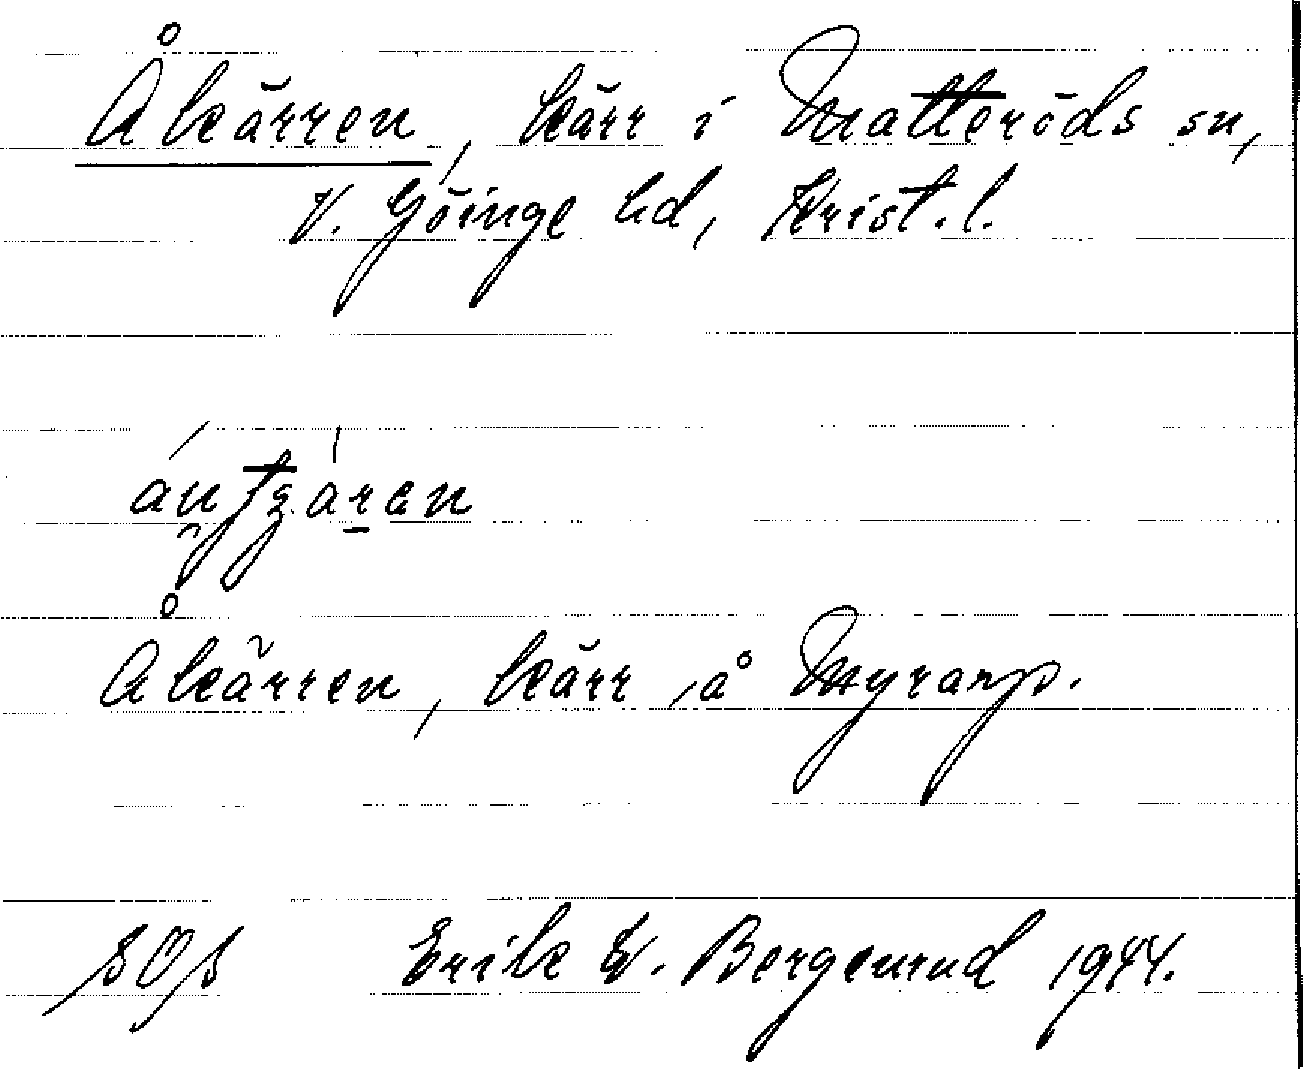 Åkärren, kärr i Matteröds sn,
V. Göinge hd, Krist. l.
Åkärren, kärr å Myrarp.
Erik W. Bergenrud 1944.